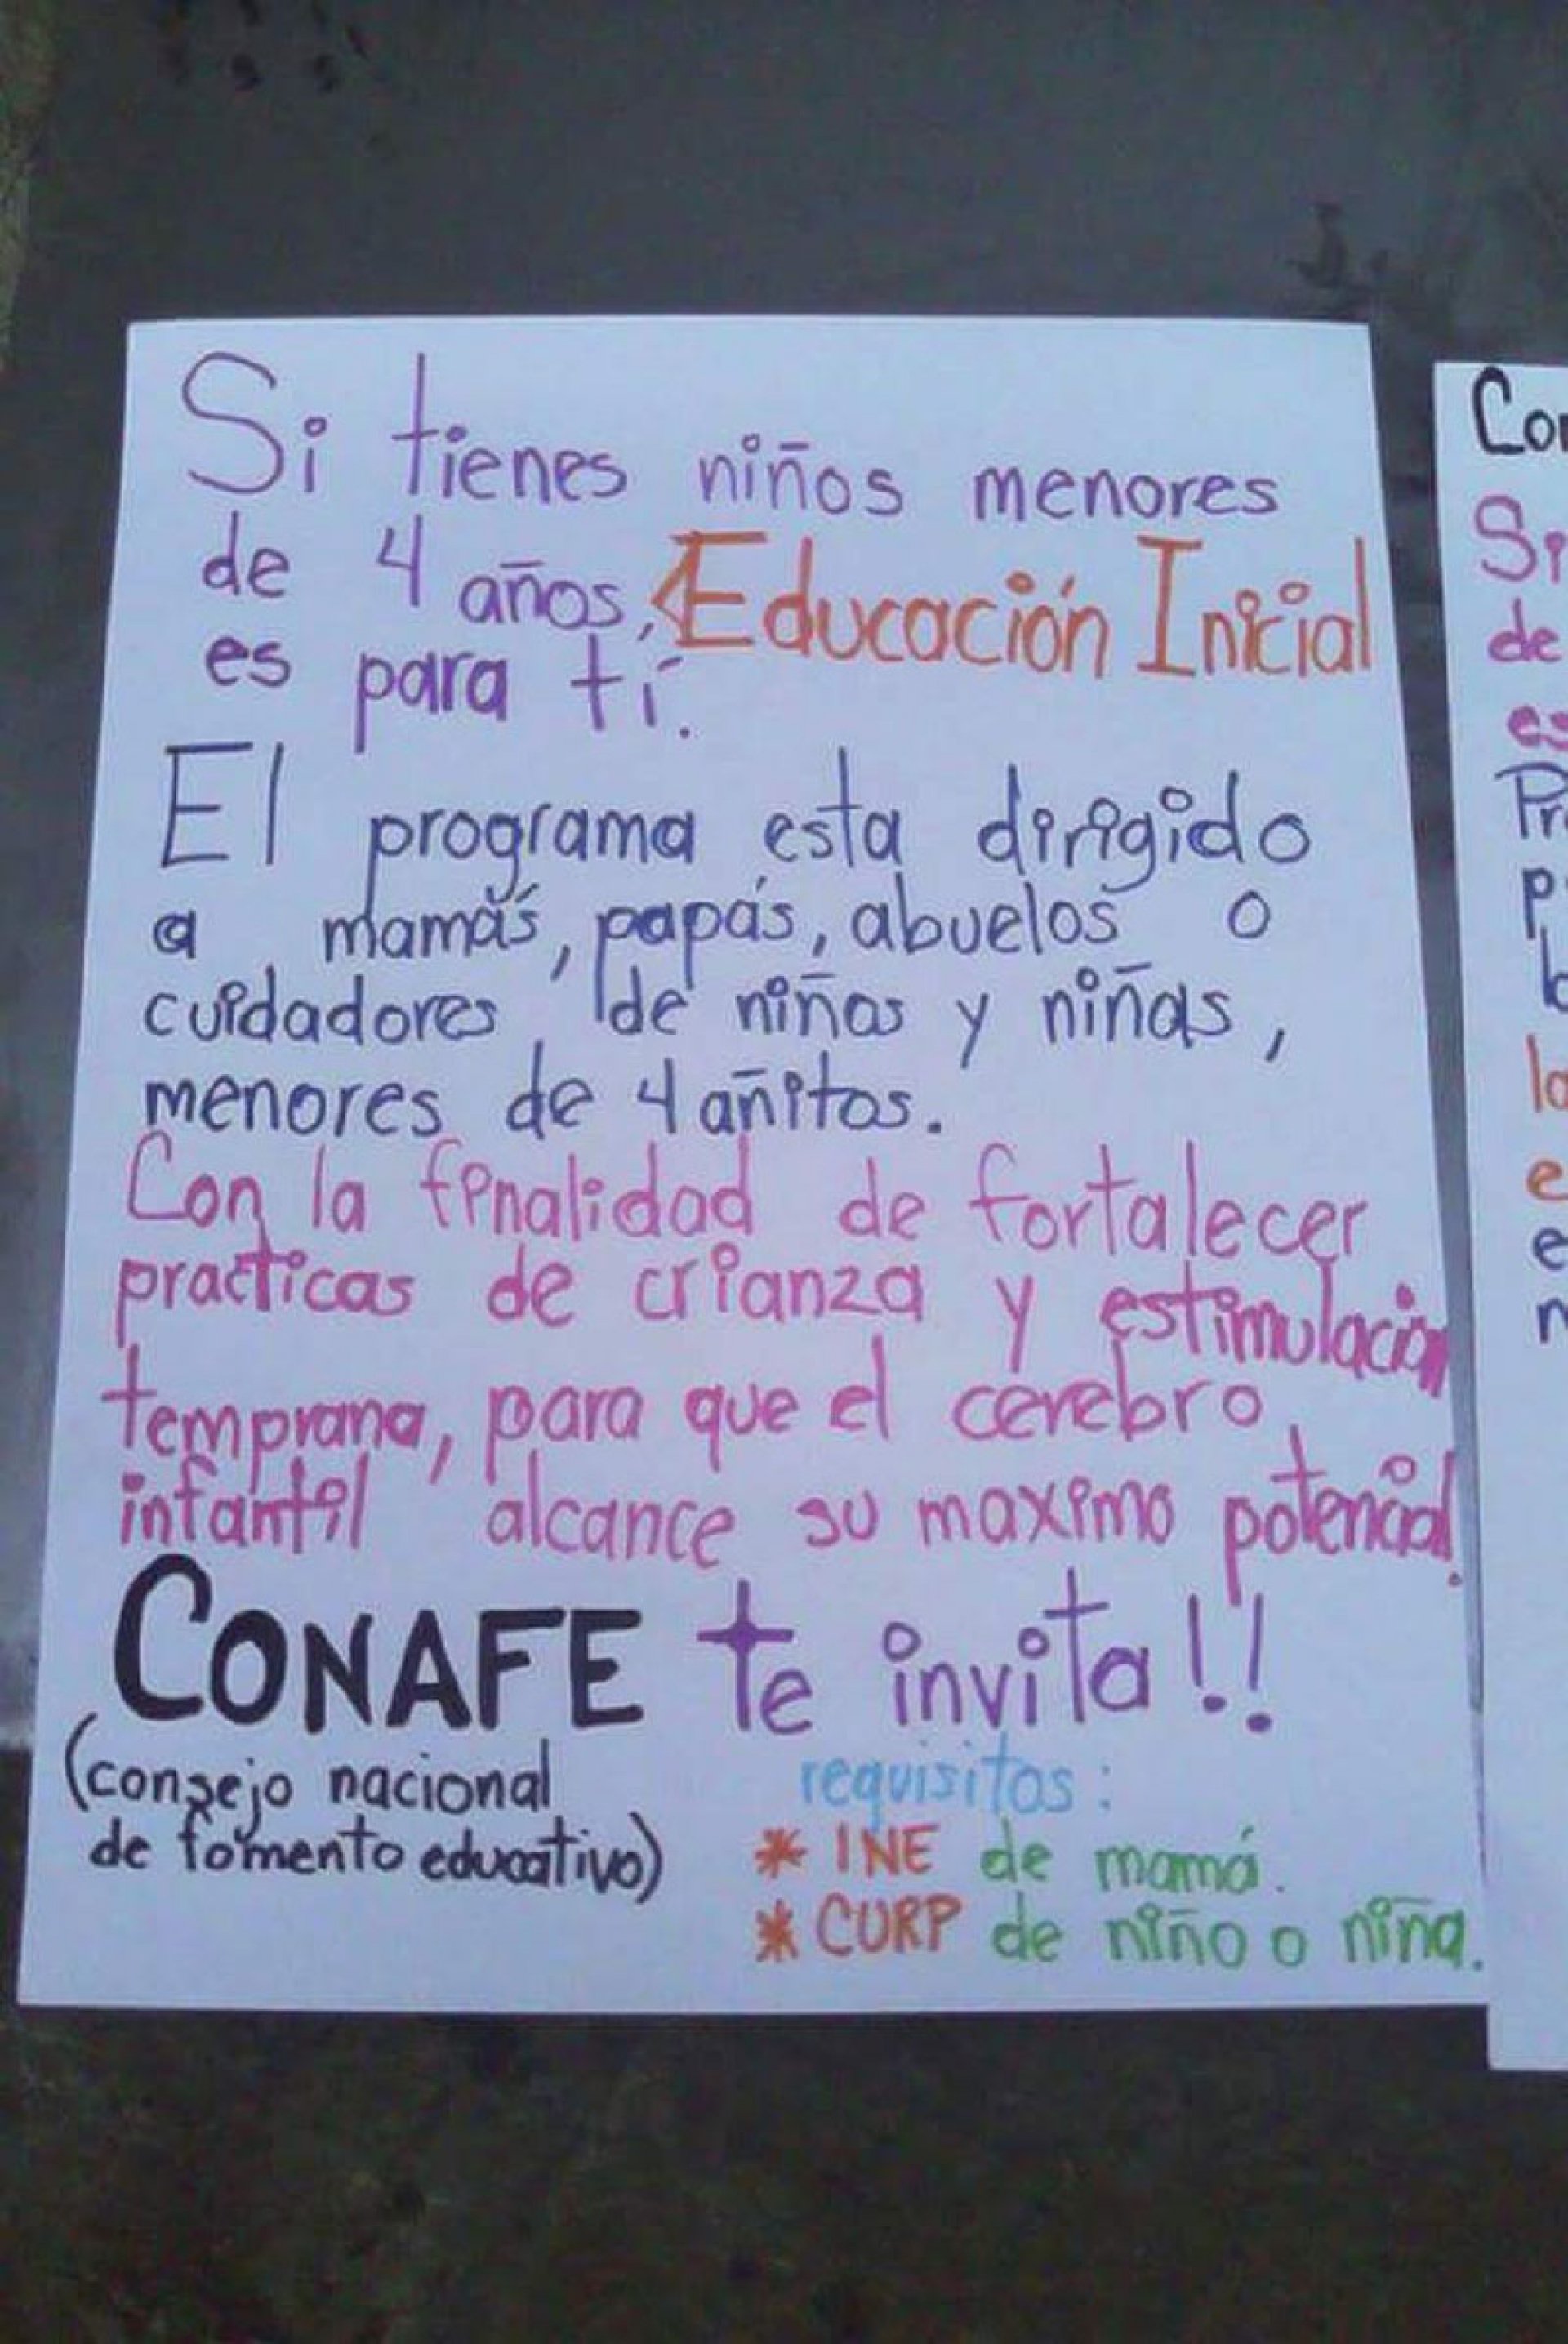 Si tienes niños menores
de 4 años, Educación Inicial
es para tí.
El programa esta dirigido
a mamás, papás, abuelos o
cuidadores de niños y niñas,
menores de 4 añitos.
Con la finalidad de fortalecer
practicas de crianza y estimulación
temprana, para que el cerebro
infantil alcance su maximo potencial.
CONAFE te invita!!
(consejo nacional
de fomento educativo)
requisitos:
* INE de mamá.
* CURP de niño o niña.
Si
de
es